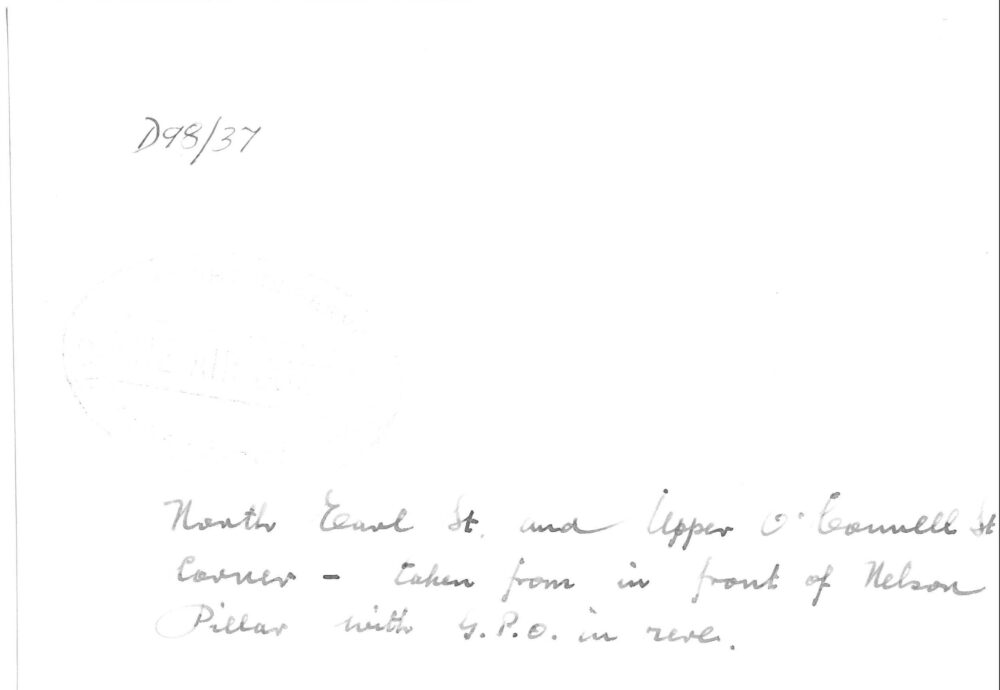 D98/37
North Earl St. and Upper O'Connell St
Corner - taken from in front of Nelson
Pillar with G.P.O. in rere.